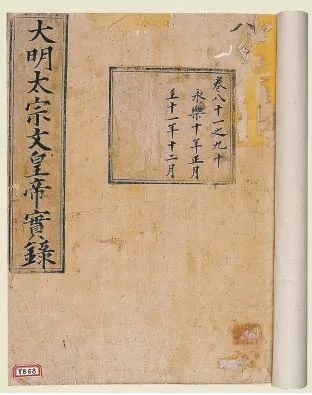 大明太宗文皇帝實錄
八
卷八十一之九十
永樂十年正月
至十一年十二月
TB68